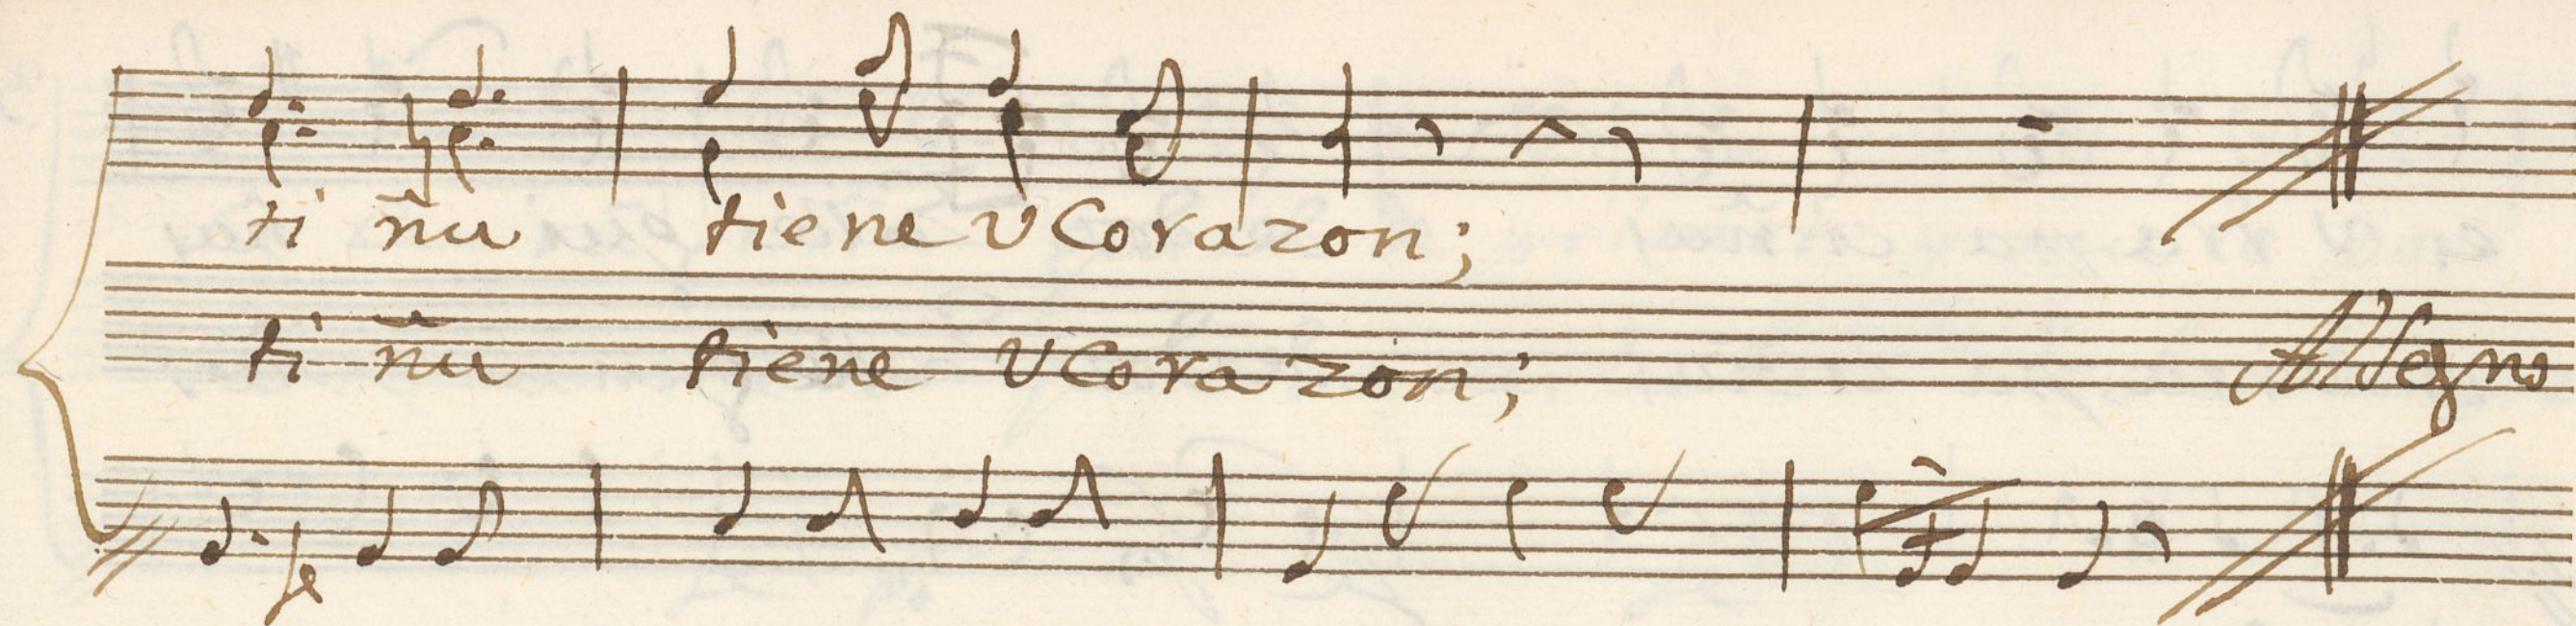 ti ñu tiene v Corazon;
ti ñu tiene v Corazon;
Al Segno